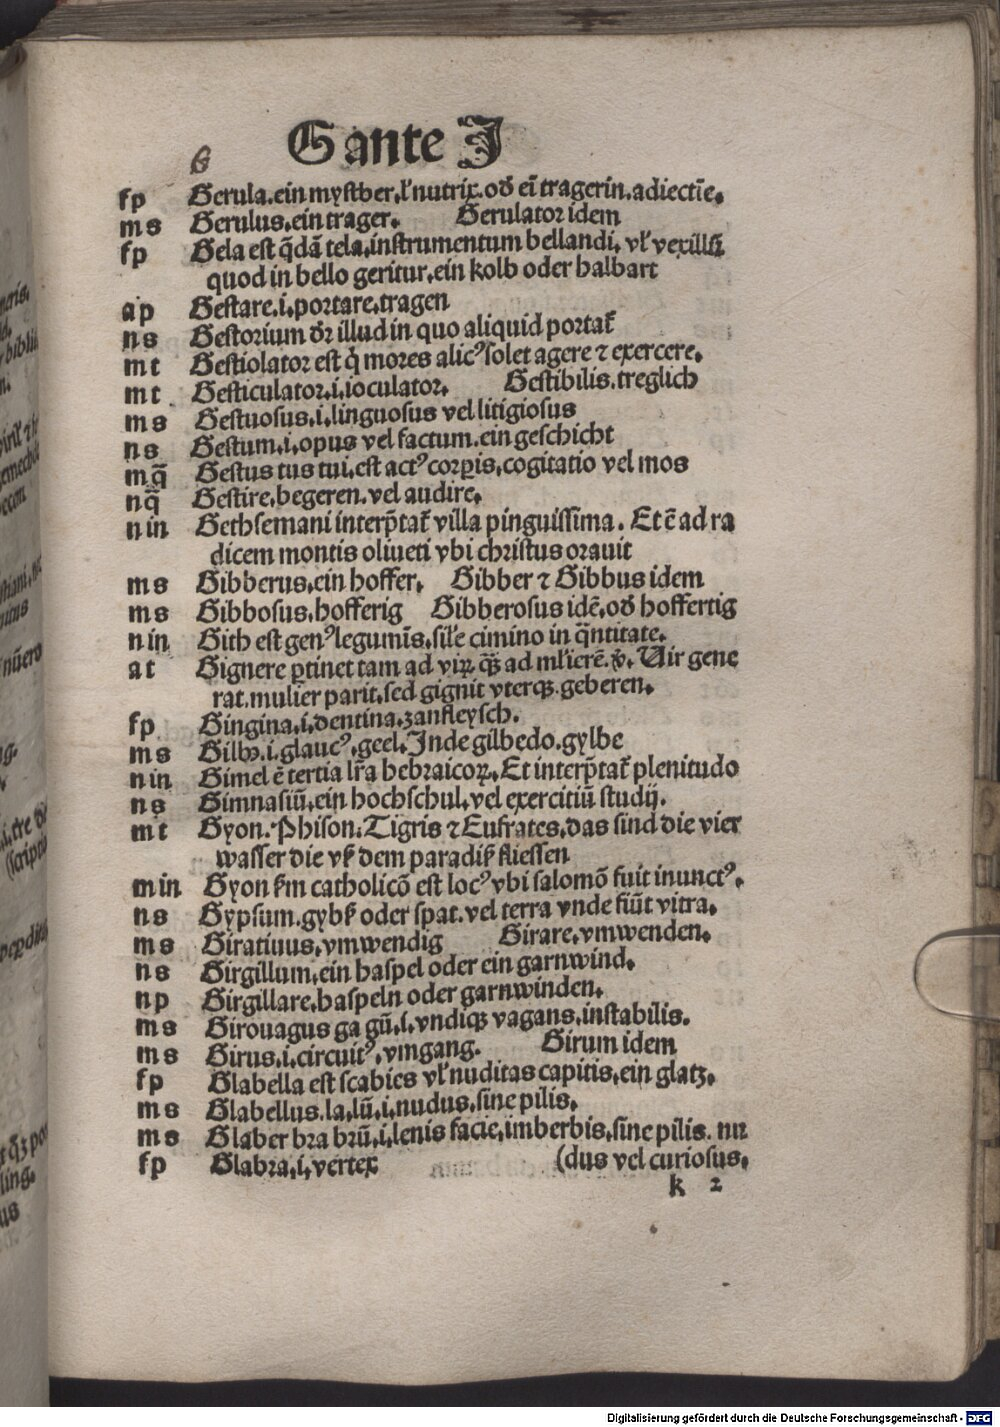 G ante J
G
fp Gerula.ein mystber.ł nutrix.od̛ eī tragerin.adiectīe.
m s Gerulus.ein trager. Gerulator idem
fp Gesa est q̄dā tela.instrumentum bellandi.vł vexillū
quod in bello geritur.ein kolb oder halbart
a p Gestare.i.portare.tragen
n s Gestorium dr̄ illud in quo aliquid portat̄
m t Gestiolator est q̇ mores alicꝰ solet agere ⁊ exercere.
m t Gesticulator.i.ioculator. Gestibilis.treglich
m s Gestuosus.i.linguosus vel litigiosus
n s Gestum.i.opus vel factum.ein geschicht
m q̄ Gestus tus tui.est actꝰ corꝑis.cogitatio vel mos
n q̄ Gestire.begeren.vel audire.
n in Gethsemani interp̄tat̄ villa pinguissima. Et ē ad ra
dicem montis oliueti vbi christus orauit
m s Gibberus.ein hoffer. Gibber ⁊ Gibbus idem
m s Gibbosus.hofferig Gibberosus idē.od̛ hoffertig
n in Gith est genꝰ legumīs.sił'e cimino in q̄ntitate.
a t Gignere ꝑtinet tam ad viꝝ.q̄ꝫ ad mł'ierē.v̛. Uir gene
rat.mulier parit.sed gignit vterqꝫ.geberen.
fp Gingina.i.dentina.zanfleysch.
m s Gilbꝰ.i.glaucꝰ.geel.Inde gilbedo.gylbe
n in Gimel ē tertia lr̄a hebraicoꝝ.Et interp̄tat̄ plenitudo
n s Gimnasiū.ein hochschul.vel exercitiū studij.
m t Gyon.Phison.Tigris ⁊ Eufrates.das sind die vier
wasser die vß dem paradiß fliessen
m in Gyon ẜm catholicō est locꝰ vbi salomō fuit inunctꝰ.
n s Gypsum.gybß oder spat.vel terra vnde fiūt vitra.
m s Giratiuus.vmwendig Girare.vmwenden.
n s Girgillum.ein haspel oder ein garnwind.
n p Girgillare.haspeln oder garnwinden.
m s Girouagus ga gū.i.vndiqꝫ vagans.instabilis.
m s Girus.i.circuitꝰ.vmgang. Girum idem
fp Glabella est scabies vł nuditas capitis.ein glatz.
m s Glabellus.la.lū.i.nudus.sine pilis.
m s Glaber bra brū.i.lenis facie.imberbis.sine pilis. nu
fp Glabra.i.vertex (dus vel curiosus.
k 2
Digitalisierung gefördert durch die Deutsche Forschungsgemeinschaft - DFG